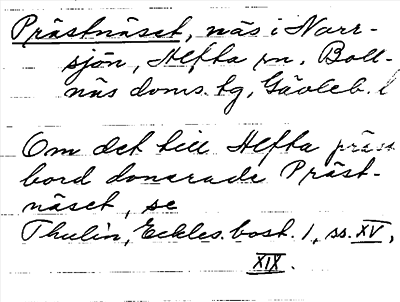 Prästnäset, näs i Norr-
sjön, Alfta sn. Boll-
näs doms.tg, Gävleb. l
Om det till Alfta präst
bord donerade Präst-
näset, se
Thulin, Eckles. bost. 1, ss. XV,
XIX.